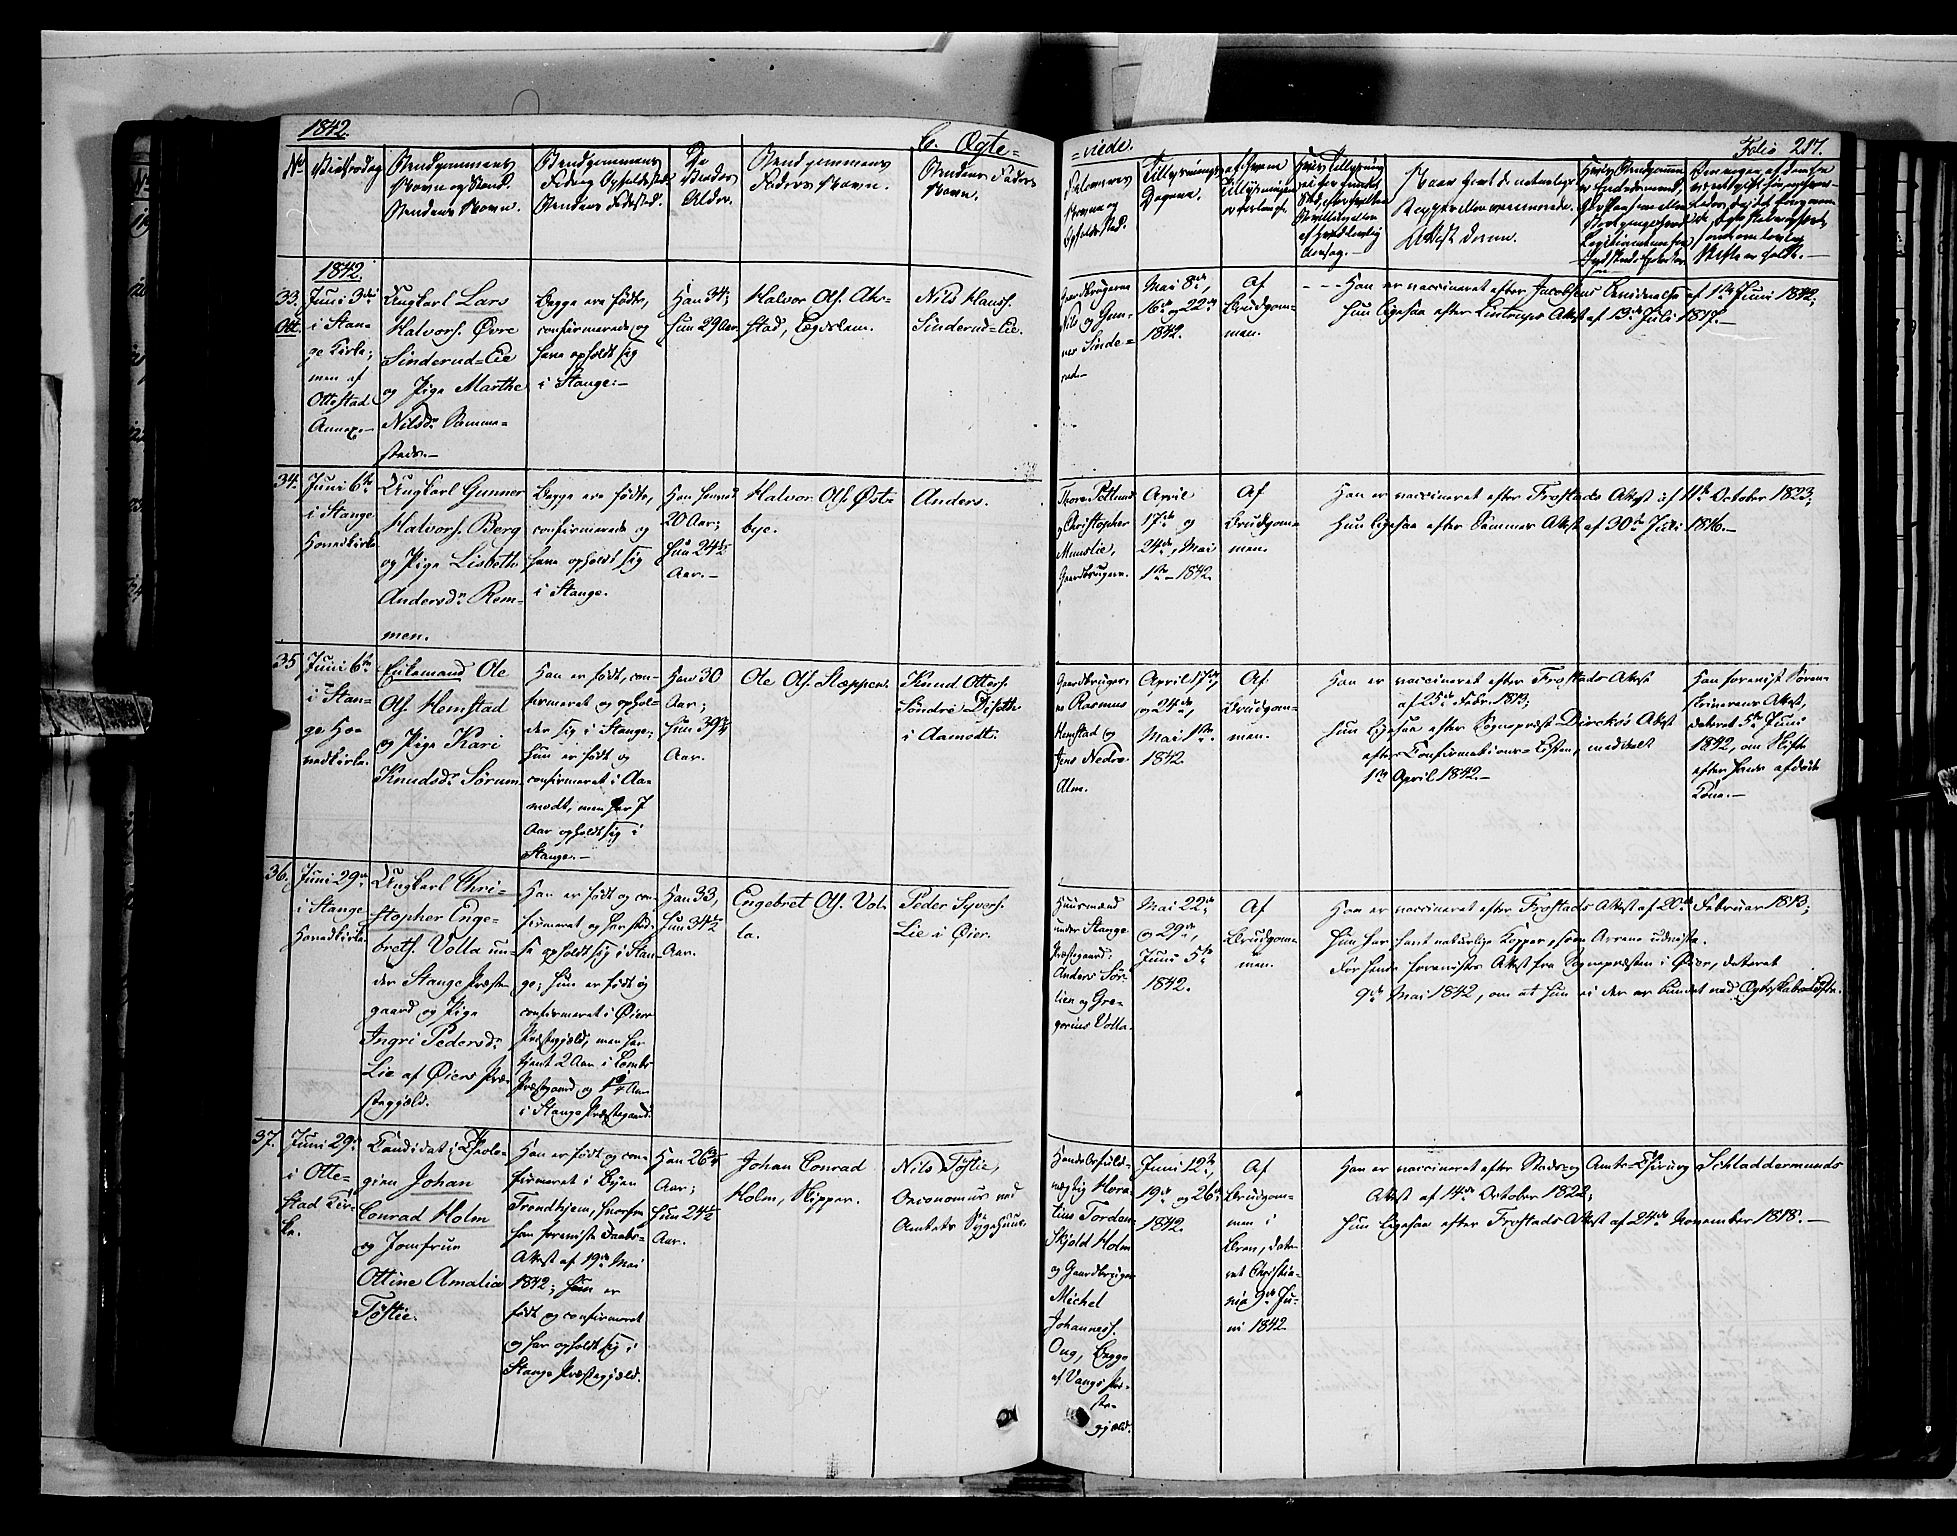 1842.
C. Ægte=
=viede.
Folio 217.
No
Vielsesdag
Brudgommens
Navn og Stand.
Brudens Navn.
Brudgommens
Fødeog Opholdssted.
Brudens Fødested.
De
Viedes
Alder.
Brudgommens
Faders Navn.
Brudens Faders
Navn.
Forlovernes
Navne og
Opholdssted.
Tillysnings
Dagene.
af hvem
Tillysningen
er forlangt.
Naar havt de naturlige
Kopper eller vaccinerede.
Attest derom.
1842.
33.
Ott.
Juni 3die
i Stan-
ge Kirke;
men af
Ottestad
Annex.-
Ungkarl Lars
Halvors. Øvre
Sinderud=Eie
og Pige Marthe
Nilsdr.
Begge ere fødte,
confirmerede og
have opholdt sig
i Stange.-
Han 34;
hun 29 Aar.
Halvor Ols.
stad, Lægdslem.
Nils Hanss.
Sinderud=Eie.
Gaardbrugerne
Nils og Gun-
ner Sinde=
rud.-
Mai 8de,
16de og 22de
1842.
Af
Brudgom-
men.
Han er vaccineret efter Jacobsens Attest af 1ste Juni 1842;
hun ligesaa efter Attest af 13de Juli 1817.-
34.
Juni 6te
i Stange
Hovedkirke
Ungkarl Gunner
Halvors. Berg
og Pige Lisbeth
Andersdr. Rom-
men.
Begge ere fødte,
confirmerede og
have opholdt sig
i Stange.
20 Aar;
hun 24½
Aar.-
Halvor Ols. Øst-
bye.
Anders.
og Christopher
Gaardbrugere.
April
17de og
24de, Mai
1ste 1842.
Af
Brudgom-
men.
Han er vaccineret efter Frostads Attest af 11te October 1823;
hun ligesaa efter Attest af 30te Juli 1816.-
35
Juni 6te
i Stan-
ge Ho-
vedkirke.
Enkemand Ole
Ols. Hemstad
og Pige Kari
Knudsdr. Sørum
Han er født, con-
firmeret og ophol-
der sig i Stange;
hun er født og
confirmeret i Aa-
modt, men har 7
Aar opholdt sig i
Stange.-
Han 30
Aar;
hun 39¾
Aar.
Ole Ols. Sleppen.
Knud Otters.
Søndre Diseth
i Aamodt.
Gaardbruger-
ne Rasmus
Hemstad og
Jens Nedre
Alm.
April 17de,
og 24de,
Mai 1ste
1842.
Af
Brudgom-
men.
Han er vaccineret efter Frostads Attest
af 25de Febr. 1813;
hun ligesaa efter Sognepræst Dircks's Attest
efter Confirmations-Listen, meddeelt
1ste April 1842.-
Han foreviste Soren-
skriverens Attest,
dateret 5te Juni
1842, om Skifte
efter hans afdøde
Kone.-
36.
Juni 29de
i Stange
Hovedkirke.
Ungkarl Chri-
stopher Enge-
brets. Volla un-
der Stange Præste-
gaard og Pige
Ingri Pedersdr.
Lie af Øiers Præ-
stegjæld.
Han er født og con-
firmeret og har sted-
se opholdt sig i Stan-
ge; hun er født og
confirmeret i Øier
Præstegjæld, men har
tjent 2 Aar i Lomb
Præstegaard og Aar
i Stange Præstegaard.
Han 33,
hun 34½
Aar.
Engebret Ols. Vol-
la.
Peder Syvers.
Lie i Øier.
Huusmænd
under Stange
Præstegaard:
Anders Sør-
lien og Gre-
gorius Volla.
Mai 22de
og 29de,
Juni 5te
1842.
Af
Brudgom-
men.
Han er vaccineret efter Frostads Attest af 20de Februar 1813;
hun har havt naturlige Kopper, som Arrene udviste.
For hende forevistes Attest fra Sognepræsten i Øier, dateret
9de Mai 1842, om at hun ei der er bundet ved Ægteskabs-Løfte.
37.
Juni 29de
i Otte-
stad Kir-
ke.
Candidat i Theolo-
gien Johan
Conrad Holm
og Jomfrue
Ottine Amalia
Tøftie.
Han er født og con-
firmeret i Byen
Trondhjem, hvorfra
han foreviste Daabs-
Attest af 19de Mai
1842; hun er
født og confirmeret
og har opholdt sig i
Stange Præstegjæld.
Han 26¾
Aar;
hun 24½
Aar.
Johan Conrad
Holm, Skipper.
Nils Tøftie,
Oeconomus ved
Amtets Sygehuus.
Handelsfuld-
mægtig Hora-
tius Torden-
skjold Holm
og Gaardbruger
Michel
Johanness.
Oug, Begge
af Vangs Præ-
ste-
gjæld.
Juni 12te,
19de og 26de
1842.
Af
Brudgom-
men i
Brev, date-
ret Christia-
nia 9de Ju-
ni 1842
Han er vaccineret efter Stads- og Amts-Chirurg Schladdermunds
Attest af 14de October 1822;
hun ligesaa efter Frostads Attest af 24de November 1818.-